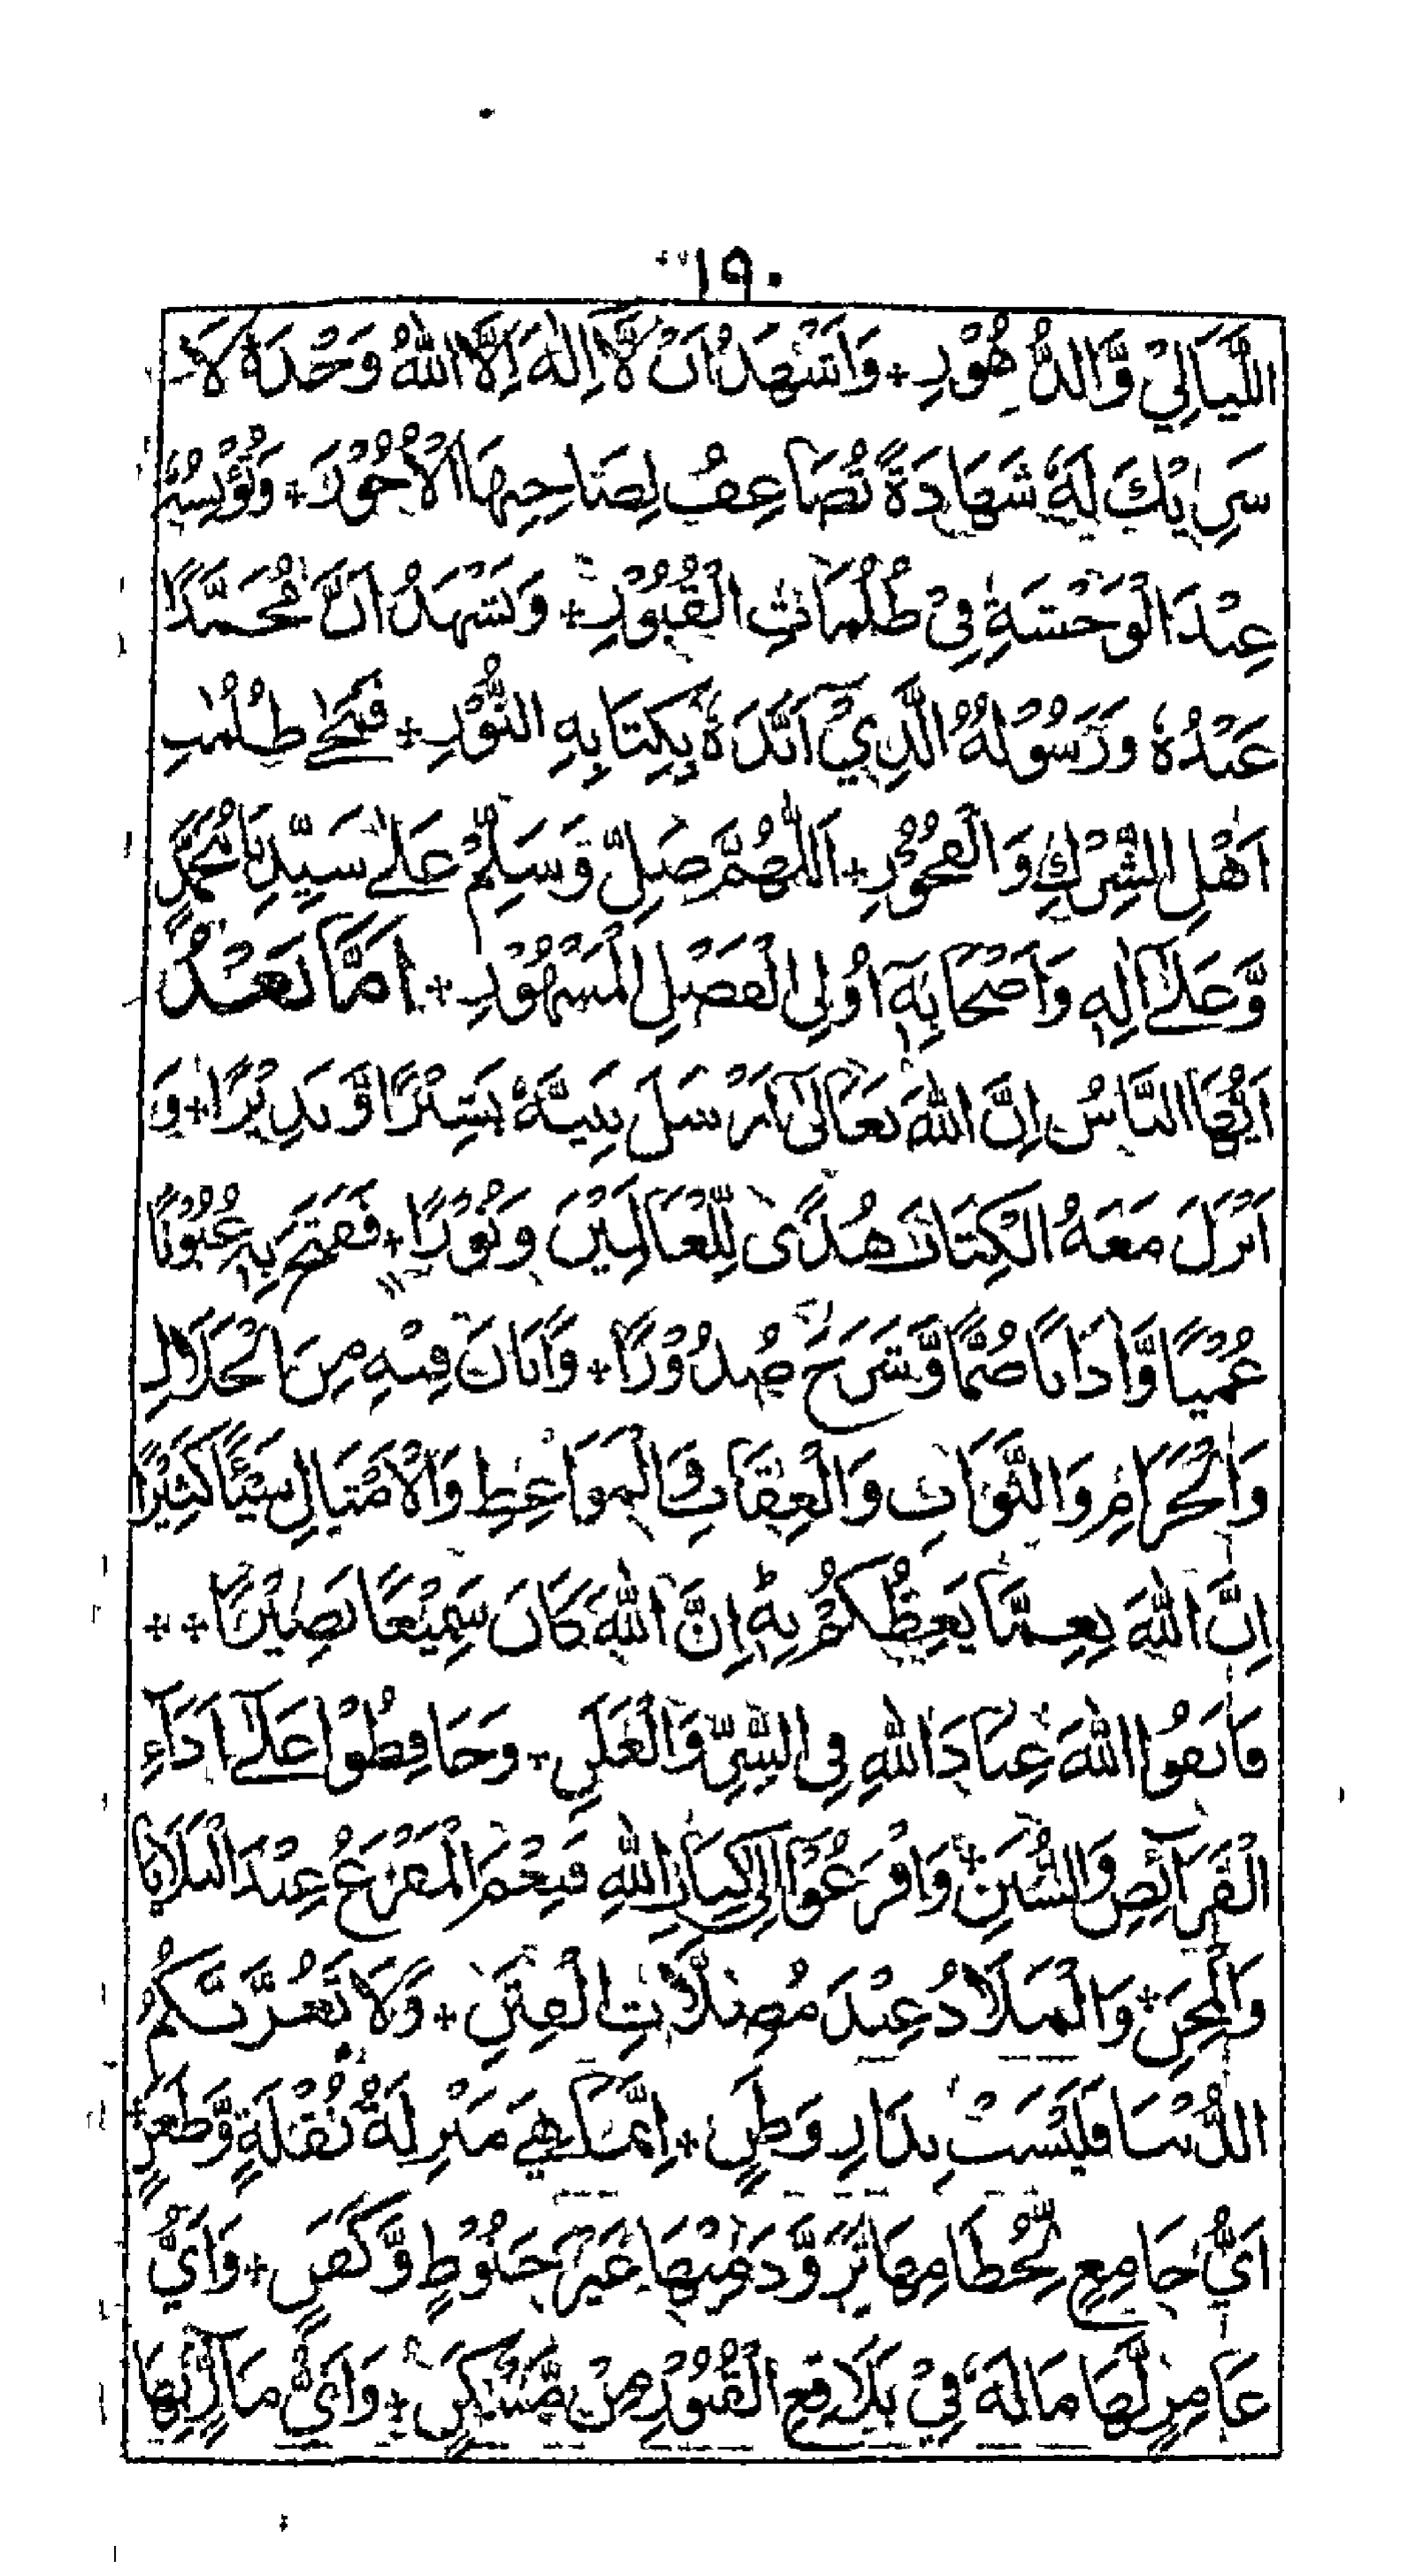 ١٩٠
اللَّيَالِيْ وَالدُّهُوْرِ + وَاَشْهَدُ اَنْ لَّا اِلٰهَ اِلَّا اللهُ وَحْدَهٗ لَا
شَرِيْكَ لَهٗ شَهَادَةً تُضَاعِفُ لِصَاحِبِهَا الْاُجُوْرَ + وَتُؤْنِسُهٗ
عِنْدَ الْوَحْشَةِ فِيْ ظُلُمَاتِ الْقُبُوْرِ + وَنَشْهَدُ اَنَّ مُحَمَّدًا
عَبْدُهٗ وَرَسُوْلُهُ الَّذِيْ اَيَّدَهٗ بِكِتَابِهِ النُّوْرِ + فَمَحٰى ظُلْمَ
اَهْلِ الشِّرْكِ وَالْفُجُوْرِ + اَللّٰهُمَّ صَلِّ وَسَلِّمْ عَلٰى سَيِّدِنَا مُحَمَّدٍ
وَّعَلٰى اٰلِهٖ وَاَصْحَابِهٖ اُولِي الْفَضْلِ الْمَشْهُوْرِ + اَمَّا بَعْدُ
اَيُّهَا النَّاسُ اِنَّ اللهَ تَعَالٰى اَرْسَلَ نَبِيَّهٗ بَشِيْرًا وَّنَذِيْرًا + وَ
اَنْزَلَ مَعَهُ الْكِتَابَ هُدًى لِّلْعَالَمِيْنَ وَنُوْرًا + فَفَتَحَ بِهٖ عُيُوْنًا
عُمْيًا وَّاٰذَانًا صُمًّا وَّشَرَحَ صُدُوْرًا + وَاَبَانَ فِيْهِ مِنَ الْحَلَالِ
وَالْحَرَامِ وَالثَّوَابِ وَالْعِقَابِ وَالْمَوَاعِظِ وَالْاَمْثَالِ شَيْئًا كَثِيْرًا
اِنَّ اللهَ نِعِمَّا يَعِظُكُمْ بِهٖ اِنَّ اللهَ كَانَ سَمِيْعًا بَصِيْرًا + +
فَاتَّقُوا اللهَ عِبَادَ اللهِ فِي السِّرِّ وَالْعَلَنِ + وَحَافِظُوْا عَلٰى اَدَآءِ
الْفَرَآئِضِ وَالسُّنَنِ + وَافْزَعُوْا اِلٰى كِتَابِ اللهِ فَنِعْمَ الْمَفْزَعُ عِنْدَ الْبَلَايَا
وَالْمِحَنِ + وَالْمَلَاذُ عِنْدَ مُضِلَّاتِ الْفِتَنِ + وَلَا تَغُرَّنَّكُمُ
الدُّنْيَا فَلَيْسَتْ بِدَارِ وَطَنٍ + اِنَّمَا هِيَ مَنْزِلَةُ نُقْلَةٍ وَّظَعَنٍ +
اَيُّ جَامِعٍ لِحُطَامِهَا تَزَوَّدَ مِنْهَا غَيْرَ حَنُوْطٍ وَّكَفَنٍ + وَاَيُّ
عَامِرٍ لَّهَا مَا لَهٗ فِيْ بَلَاقِعِ الْقُبُوْرِ مِنْ مَّسْكَنٍ + وَاَيُّ مَالٍ بِهَا